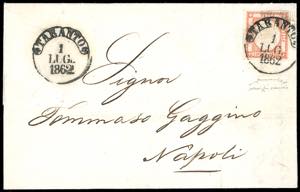 TARANTO
1
LUG.
1862
TARANTO
1
LUG.
1862
Signor
Tommaso Gaggino
Napoli